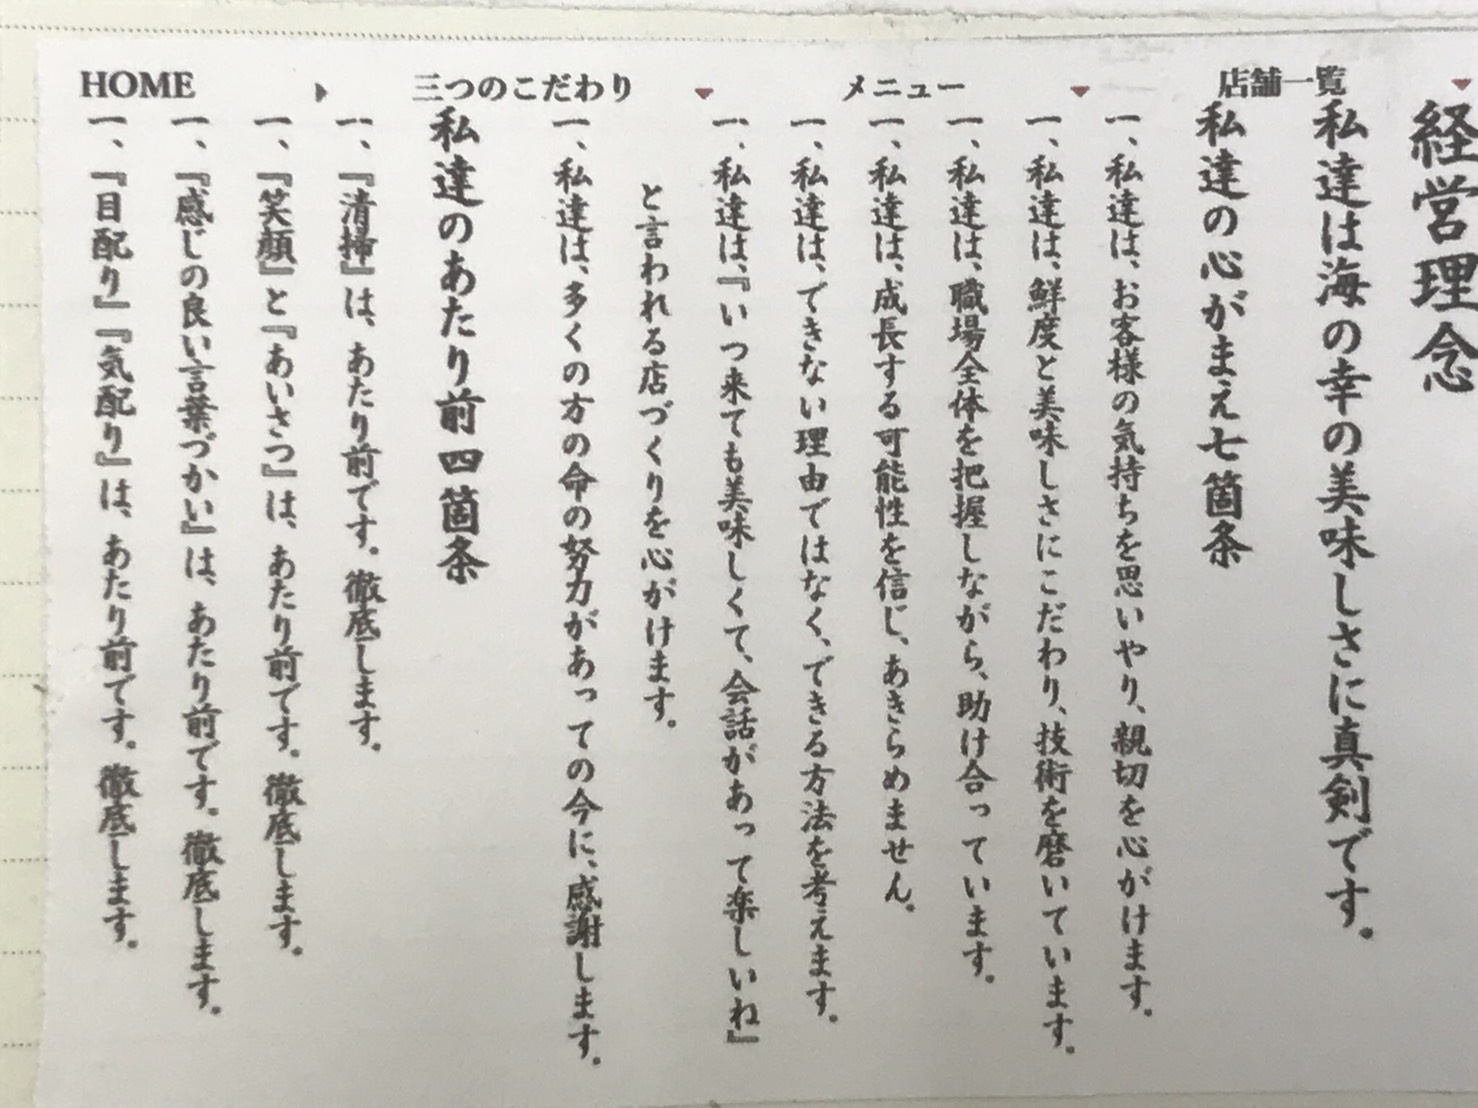 HOME
三つのこだわり
メニュー
店舗一覧
経営理念
私達は海の幸の美味しさに真剣です。
私達の心がまえ七箇条
一、私達は、お客様の気持ちを思いやり、親切を心がけます。
一、私達は、鮮度と美味しさにこだわり、技術を磨いています。
一、私達は、職場全体を把握しながら、助け合っています。
一、私達は、成長する可能性を信じ、あきらめません。
一、私達は、できない理由ではなく、できる方法を考えます。
一、私達は、『いつ来ても美味しくて、会話があって楽しいね』
と言われる店づくりを心がけます。
一、私達は、多くの方の命の努力があっての今に、感謝します。
私達のあたり前四箇条
一、『清掃』は、あたり前です。徹底します。
一、『笑顔』と『あいさつ』は、あたり前です。徹底します。
一、『感じの良い言葉づかい』は、あたり前です。徹底します。
一、『目配り』『気配り』は、あたり前です。徹底します。